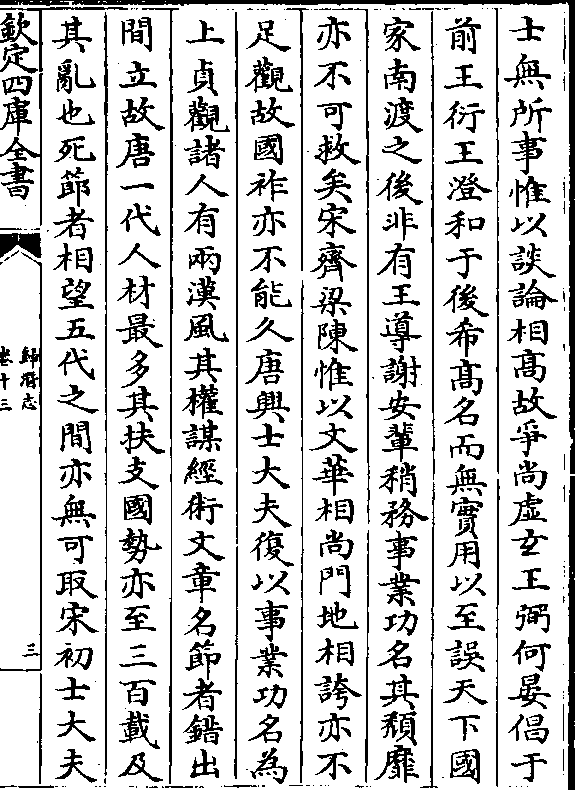 士無所事惟以談論相髙故爭尚虛𤣥王弼何晏倡于
前王衍王澄和于後希髙名而無實用以至誤天下國
家南渡之後非有王導謝安輩稍務事業功名其頽靡
亦不可救矣宋齊梁陳惟以文華相尚門地相誇亦不
足觀故國祚亦不能久唐興士大夫復以事業功名為
上貞觀諸人有兩漢風其權謀經術文章名節者錯出
間立故唐一代人材最多其扶支國勢亦至三百載及
其亂也死節者相望五代之間亦無可取宋初士大夫
欽定四庫全書
歸潛志
卷十三
三